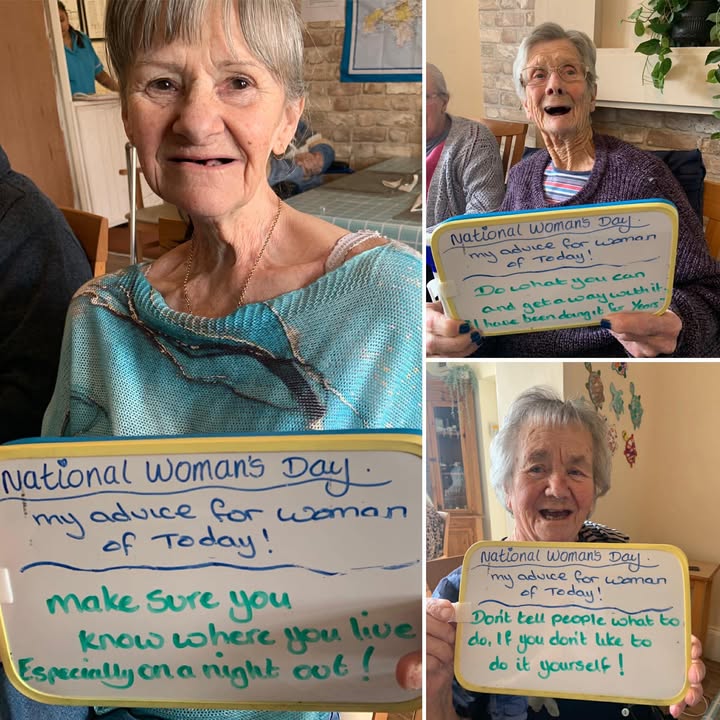 National Woman's Day.
my advice for woman
of Today!
make sure you
know where you live
Especially on a night out!
National Woman's Day.
my advice for woman
of Today!
Do what you can
and get away with it
I have been doing it for Years
National Woman's Day.
my advice for woman
of Today!
Don't tell people what to
do, If you don't like to
do it yourself!